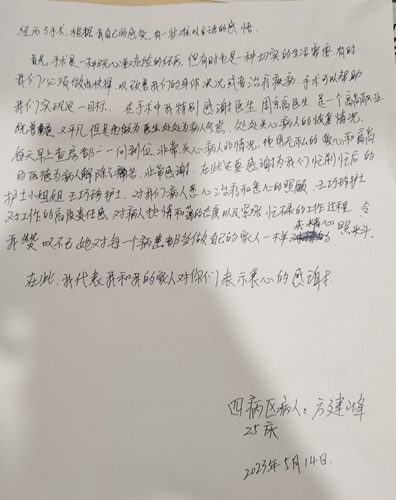 经历了手术,根据我自己的感受,有一些难以言语的感悟.
首先,手术是一种现心连危险的经历,但有时也是一种切实的生活需要,有时
我们必须做出抉择,以改善我们的身体状况或者治疗疾病,手术可以帮助
我们实现这一目标.在手术中我特别感谢医生周京高医生,是一个高尚职业
既普通又平凡但是他做为医生处处为病人考虑,处处关心病人的恢复情况,
每天早上查房都一一问到位,非常关心病人的情况,他用无私的爱心和高尚
的医德为病人解除了痛苦,非常感谢.在此还要感谢为我们忙前忙后的
护士小姐姐王巧玲护士,对我们病人悉心治疗和悉心的照顾,王巧玲护士
对工作的高度责任感,对病人热情和蔼的态度以及紧张忙碌的工作过程,令
我赞叹不已她对每一个病患都当做自己的家人一样来精心照料.
在此,我代表我和我的家人对你们表示衷心的感谢.
四病区病人:方建峰
25床
2023年5月14日.